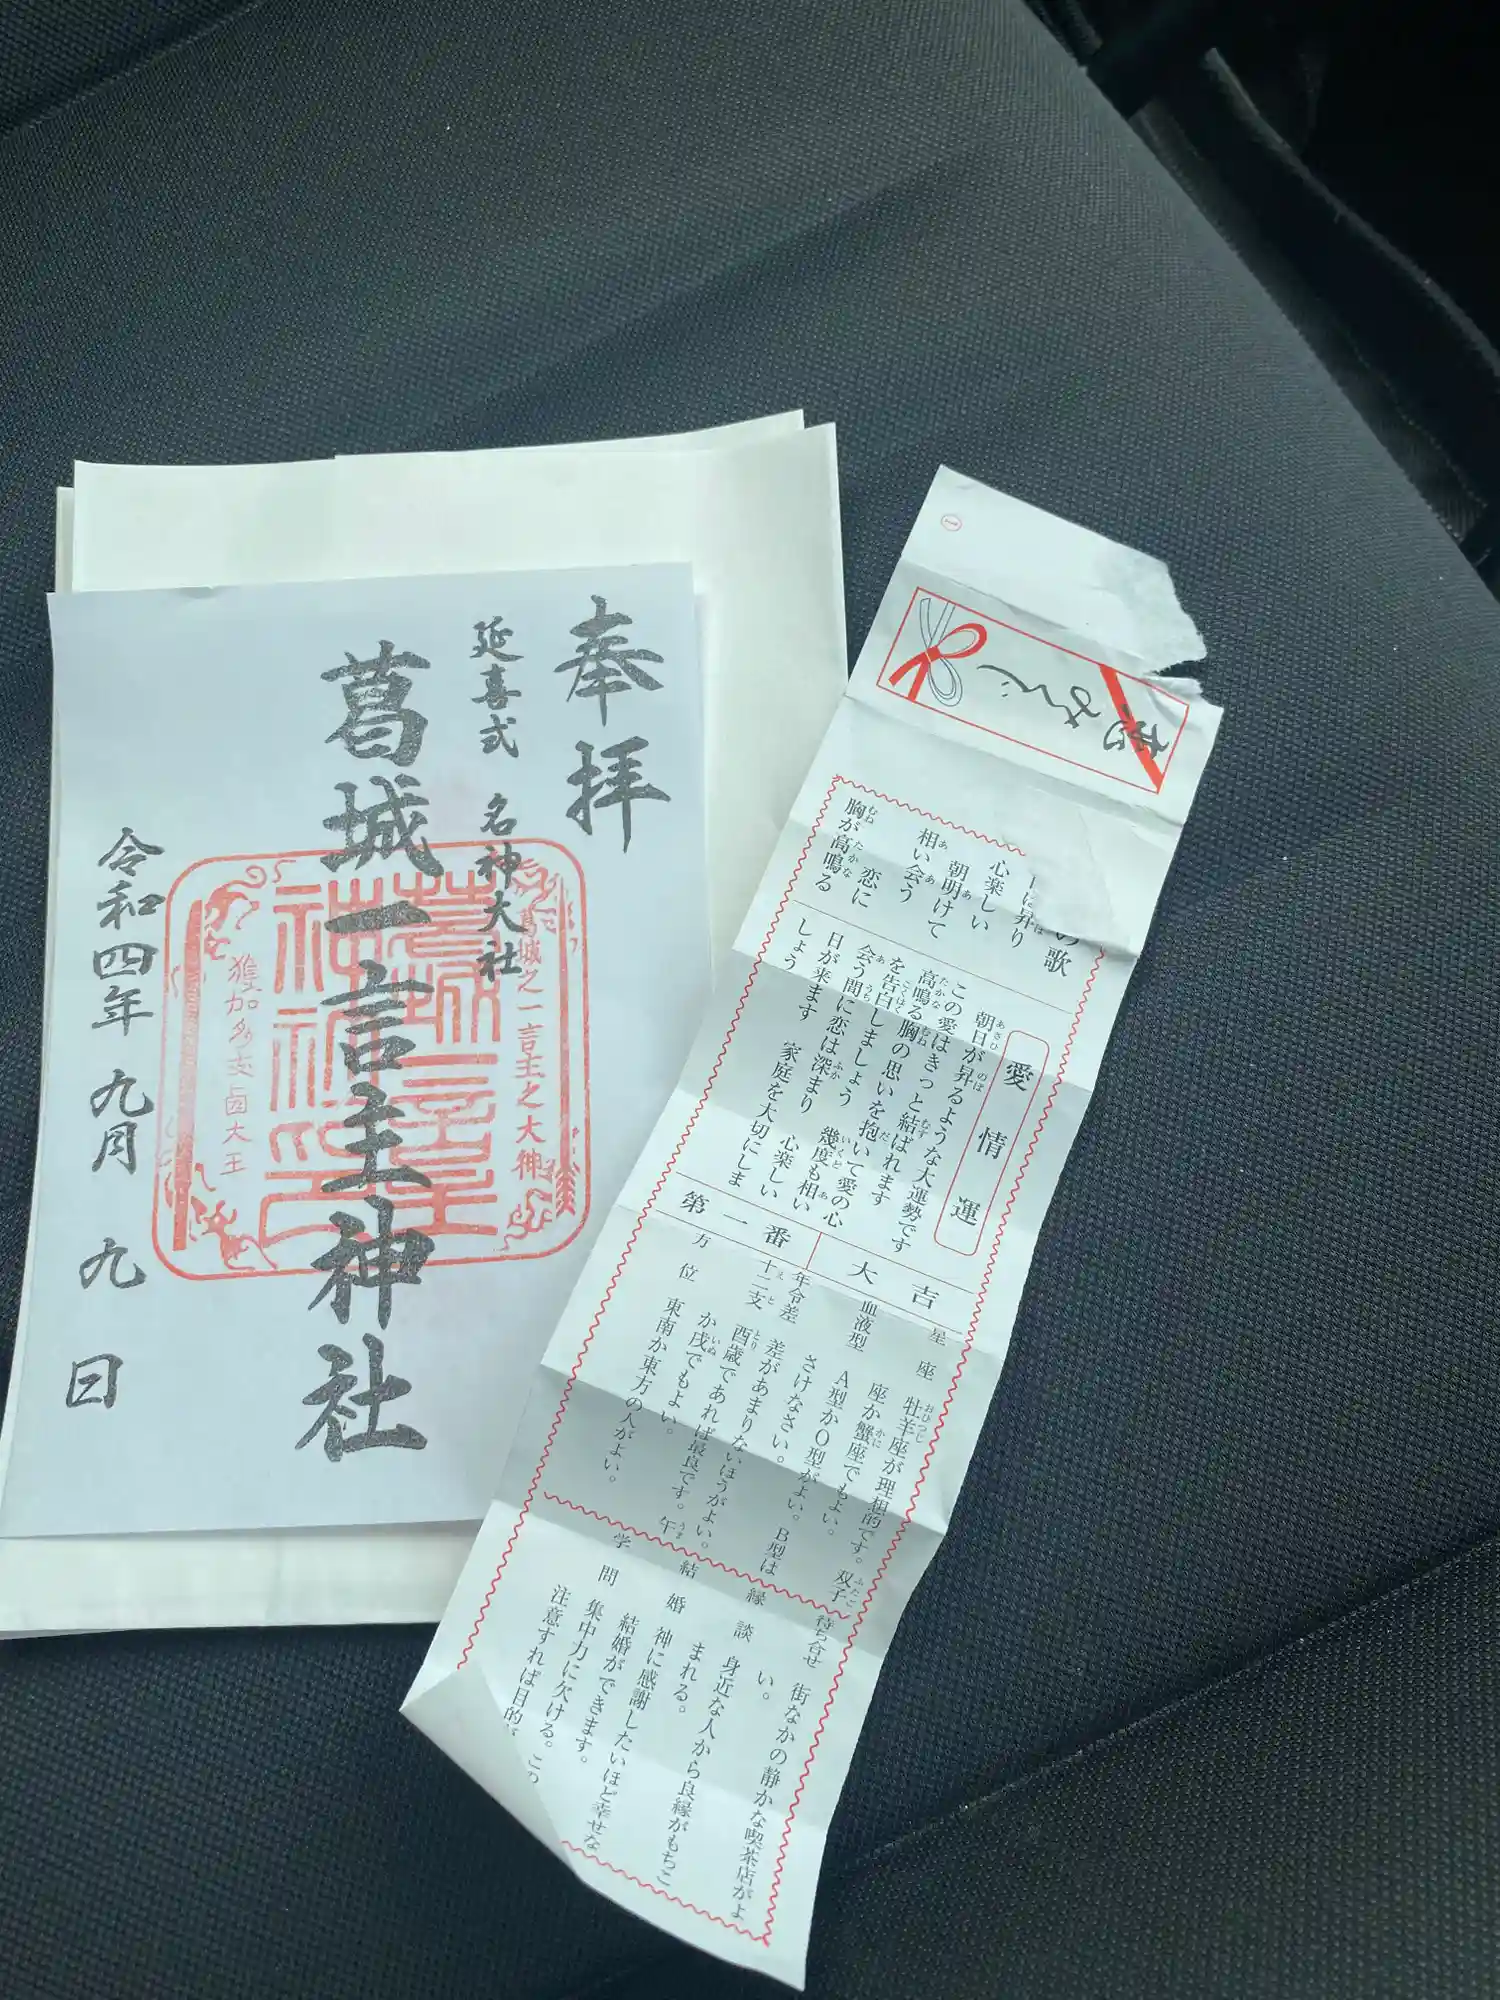 奉拝
延喜式 名神大社
葛城一言主神社
令和四年九月九日
葛城之一言主之大神
恋みくじ
の歌
日に昇り
心楽しい
朝明けて
相い会う
恋に
胸が高鳴る
愛情運
朝日が昇るような大運勢です
この愛はきっと結ばれます
高鳴る胸の思いを抱いて愛の心
を告白しましょう 幾度も相い
会う間に恋は深まり 心楽しい
日が来ます 家庭を大切にしま
しょう
第一番 大吉
星座 牡羊座が理想的です。双子
座か蟹座でもよい。
血液型 A型かO型がよい。B型は
さけなさい。
年令差 差があまりないほうがよい。
十二支 酉歳であれば最良です。午
か戌でもよい。
方位 東南か東方の人がよい。
待ち合せ 街なかの静かな喫茶店がよ
い。
縁談 身近な人から良縁がもちこ
まれる。
結婚 神に感謝したいほど幸せな
結婚ができます。
学問 集中力に欠ける。この
注意すれば目的が